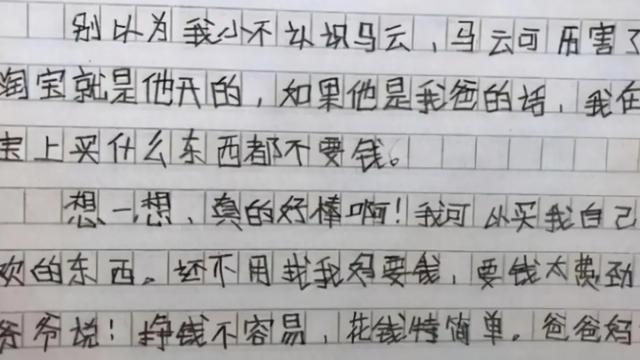 别以为我小不认识马云，马云可厉害了
淘宝就是他开的，如果他是我爸的话，我在
宝上买什么东西都不要钱。
想一想，真的好棒啊！我可以买我自己
欢的东西。还不用找我妈要钱，要钱太费劲
爷爷说！挣钱不容易，花钱特简单。爸爸妈